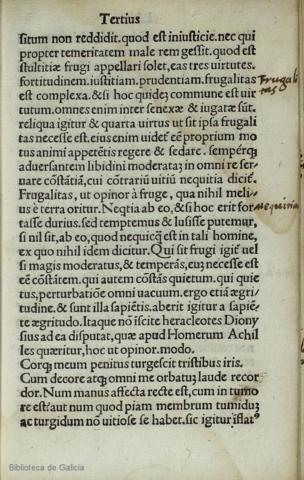 Tertius
situm non reddidit. quod est iniusticie. nec qui
propter temeritatem male rem gessit. quod est
stultitiæ frugi appellari solet, eas tres virtutes.
fortitudinem. iustitiam. prudentiam. frugalitas
Frugali
est complexa. & si hoc quideʒ commune est uir
tas
tutum. omnes enim inter se nexæ & iugatæ sūt.
reliqua igitur & quarta virtus ut sit ipsa frugali
tas necesse est. eius enim uideť eē proprium mo
tus animi appetētis regere & sedare. semperꝗ;
aduersantem libidini moderataʒ in omni re ser-
uare cōstātiā, cui cōtrariū uitiū nequitia diciť.
Frugalitas, ut opinor à fruge, qua nihil meli⁹
us è terra oritur. Neqtia ab eo, & si hoc erit for
nequitia
tasse durius. sed temptemus & lusisse putemur,
si nil sit, ab eo, quod nequicꝗ est in tali homine,
ex quo nihil idem dicitur. Qui sit frugi igiť uel
si magis moderatus, & temperās, euʒ necesse est
eē cōstātem. qui autem cōstās quietum. qui quie
tus, perturbatiōe omni uacuum. ergo etiā ægri/
tudine. & sunt illa sapiētis. aberit igitur a sapiē-
te ægritudo. Itaque nō īscite heracleotes Diony
sius ad ea disputat, quæ apud Homerum Achil
les quæritur, hoc ut opinor. modo.
Corꝗ; meum penitus turgescit tristibus iris.
Cum decore atꝗ; omni me orbatuʒ laude recor
dor. Num manus affecta recte est, cum in tumo
re est? aut num quod piam membrum tumiduʒ
ac turgidum nō uitiose se habet. sic igitur iflat⁹
Biblioteca de Galicia